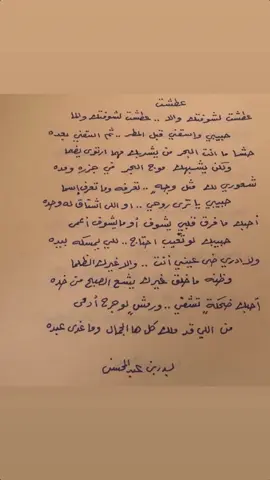 عطشت
عطشت لشوفتك والله .. عطشت لشوفتك والما
حبيبي واستقني قبل المطر .. ثم استقني بعده
حشا ما انت البحر من يشربك مهما ارتوى يظما
ولكن يشبهك موج البحر في جزره ومده
شعوري لك مثل وجهك .. تعرفه وما تعرف إسما
حبيبي يا ترى روحي .. او اللي اشتاق له وحده
أحبك ما فرق قلبي يشوف أو ما يشوف أعمى
حبيبك لو تغيب احتاج .. للي يمسكه بيده
ولا ادري ضي عيني أنت .. والا غيرك الظلما
وظنه ما خلق غيرك يشع الصبح من خده
أحبك ضحكة تشقي .. ورمش لو جرح أدمى
من اللي قد ملك كل هالجمال وما غدى عبده
لـ بدر بن عبدالمحسن